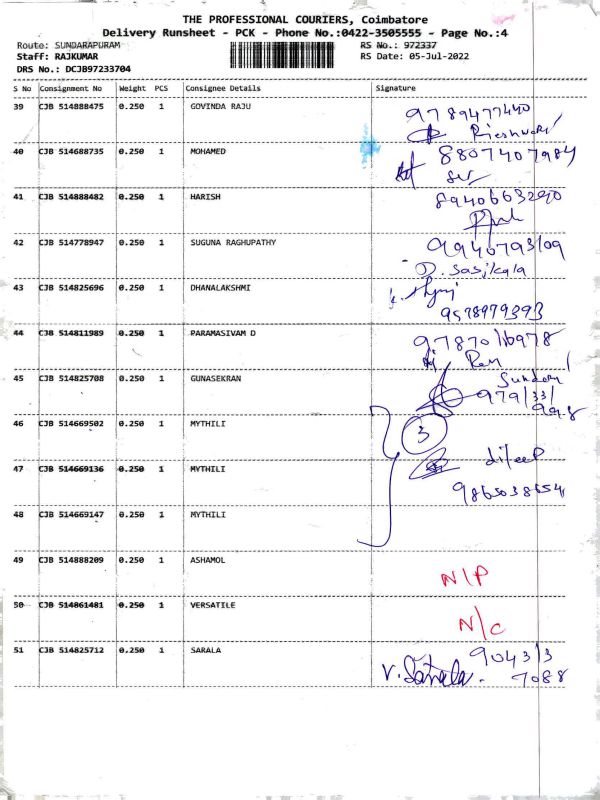 THE PROFESSIONAL COURIERS, Coimbatore
Delivery Runsheet - PCK - Phone No.:0422-3505555 - Page No.:4
Route: SUNDARAPURAM RS No.: 972337
Staff: RAJKUMAR RS Date: 05-Jul-2022
DRS No.: DCJB97233704
S No Consignment No Weight PCS Consignee Details Signature
39 CJB 514888475 0.250 1 GOVINDA RAJU 9789477440
40 CJB 514688735 0.250 1 MOHAMED 8807407984
41 CJB 514888482 0.250 1 HARISH 8940663290
42 CJB 514778947 0.250 1 SUGUNA RAGHUPATHY 9940793109
D. Sasikala
43 CJB 514825696 0.250 1 DHANALAKSHMI
9578979393
44 CJB 514811989 0.250 1 PARAMASIVAM D 9787016978
Ram
45 CJB 514825708 0.250 1 GUNASEKRAN
979133
46 CJB 514669502 0.250 1 MYTHILI 3
47 CJB 514669136 0.250 1 MYTHILI dileep
9865038654
48 CJB 514669147 0.250 1 MYTHILI
49 CJB 514888209 0.250 1 ASHAMOL N/P
50 CJB 514861481 0.250 1 VERSATILE N/C
51 CJB 514825712 0.250 1 SARALA 904313
V. Sarala. 7088